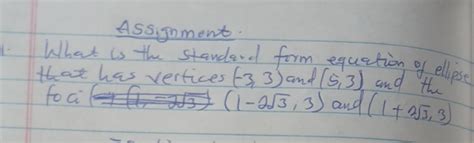 Assignment.
1. What is the standard form equation of ellipse
that has vertices (-3, 3) and (5,3) and the
foci (1-2√3, 3) and (1+2√3, 3)